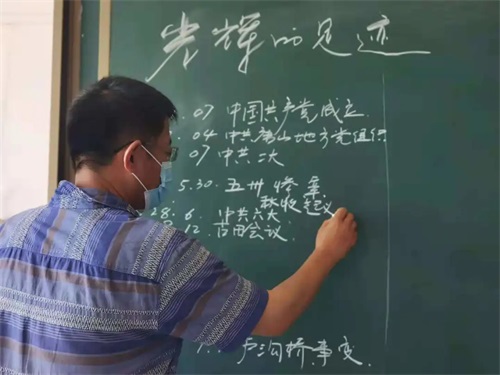 光辉的足迹
.07 中国共产党成立
.04 中共唐山地方党组织
07 中共二大
5.30. 五卅惨案.
秋收起义
28. 6. 中共六大
12. 古田会议.
卢沟桥事变.